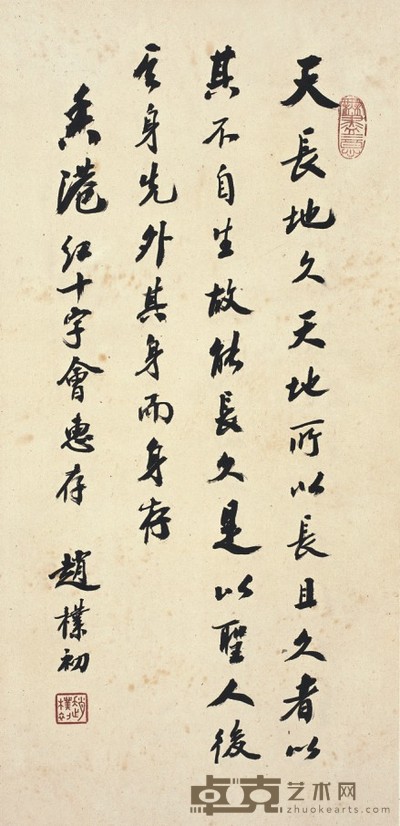 無盡意
天長地久天地所以長且久者以
其不自生故能長久是以聖人後
其身先外其身而身存
香港紅十字會惠存 趙樸初
趙樸初
卓克艺术网
zhuokearts.com